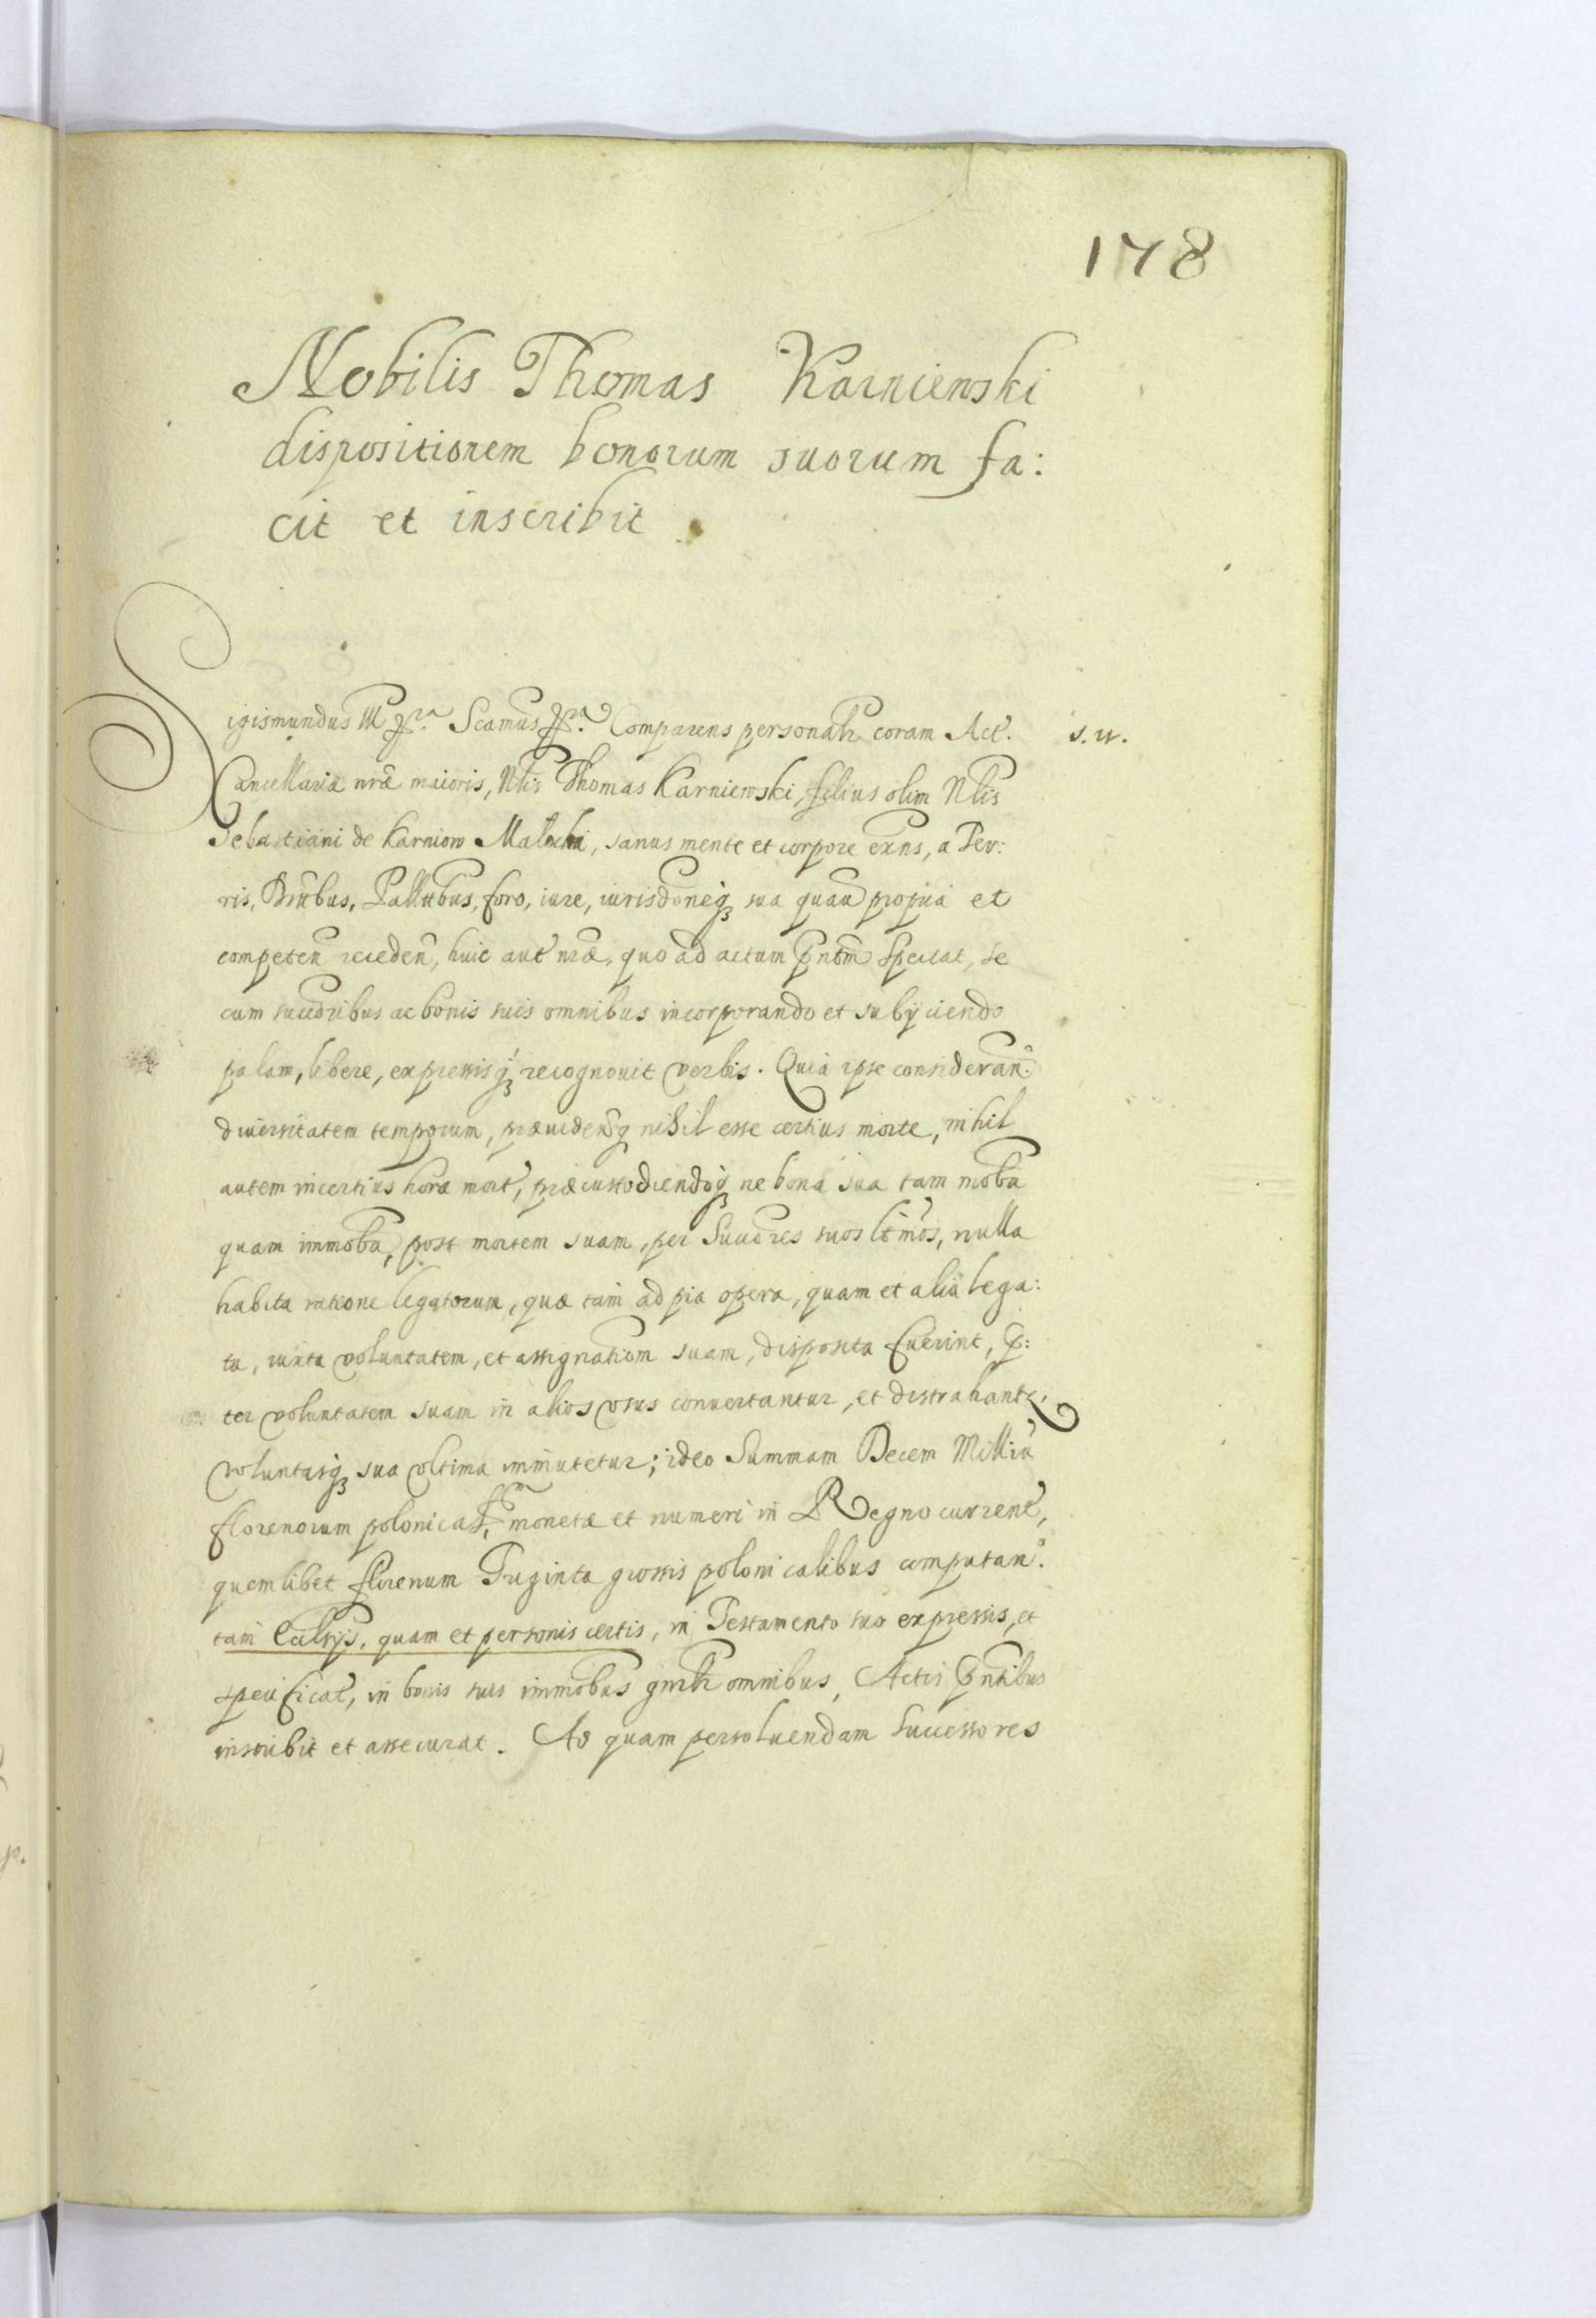 178
Nobilis Thomas Karniewski
dispositionem bonorum suorum fa:
cit et inscribit.
Sigismundus III etc. Comparens personalr coram Act. S. W.
Cancellariæ nræ maioris, Nlis Thomas Karniewski, filius olim Nlis
Sebastiani de Karniow, sanus mente et corpore exns, a Ter:
ris, foro, iure, iurisdoneq sua quau propria et
competen receden, huic aut nræ, quo ad actum pntem spectat, se
cum succoribus ac bonis suis omnibus incorporando et subijciendo
palam, libere, expressisq recognouit verbis. Quia ipse consideran.
diuersitatem temporum, præuidensq nihil esse certius morte, nihil
autem incertius horæ mort, præcustodiendoq ne bona sua tam moba
quam immoba, post mortem suam, per Succores suos ltimos, nulla
habita ratione legatorum, quæ tam ad pia opera, quam et alia lega:
ta, iuxta voluntatem, et assignationem suam, disposita fuerint, p:
ter voluntatem suam in alios vsus conuertantur, et distrahantr,
voluntasq sua vltima immutetur; ideo Summam Decem Milliu
florenorum polonical, monetæ et numeri in Regno current,
quemlibet florenum Triginta grossis polonicalibus computan.
tam Ecclsijs, quam et personis certis, in Testamento suo expressis, et
specificat, in bonis suis immobus gnrlr omnibus, Actis pntibus
inscribit et assecurat. Ad quam persoluendam Successores